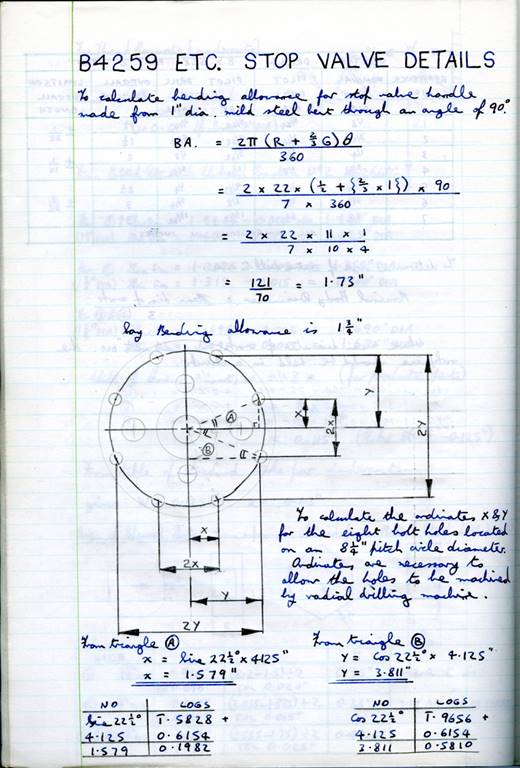 B4259 ETC. STOP VALVE DETAILS
To calculate bending allowance for stop valve handle
made from 1" dia. mild steel bent through an angle of 90°.
BA. = 2π (R + 2/3 G) θ
360
= 2 x 22 x (1/2 + {2/3 x 1}) x 90
7 x 360
= 2 x 22 x 11 x 1
7 x 10 x 4
= 121 = 1·73"
70
Say Bending allowance is 1 3/4"
A
B
x
2x
y
2y
x
2x
y
2y
To calculate the ordinates x & y
for the eight bolt holes located
on an 8 1/4" pitch circle diameter.
Ordinates are necessary to
allow the holes to be machined
by radial drilling machine.
From triangle A
x = Sin 22½° x 4·125"
x = 1·579"
NO LOGS
Sin 22½° 1̄·5828 +
4·125 0·6154
1·579 0·1982
From triangle B
y = Cos 22½° x 4·125"
y = 3·811"
NO LOGS
Cos 22½° 1̄·9656 +
4·125 0·6154
3·811 0·5810